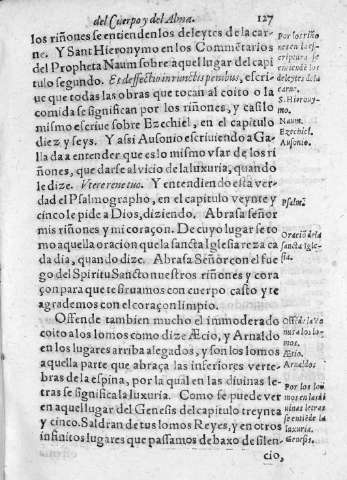 del Cuerpo y del Alma. 127
los riñones se entienden los deleytes de la car-
ne. Y Sant Hieronymo en los Commẽtarios
del Propheta Naum sobre aquel lugar del capi
tulo segundo. Et deffectio in cunctis penibus, escri
ue que todas las obras que tocan al coito o la
comida se significan por los riñones, y casi lo
mismo escriue sobre Ezechiel, en el capitulo
diez y seys. Y assi Ausonio escriuiendo a Ga-
lla da a entender que es lo mismo vsar de los ri
ñones, que darse al vicio de la luxuria, quando
le dize. Vtere rene tuo. Y entendiendo esta ver-
dad el Psalmographo, en el capitulo veynte y
cinco le pide a Dios, diziendo. Abrasa señor
mis riñones y mi coraçon. De cuyo lugar se to
mo aquella oracion que la sancta Iglesia reza ca
da dia, quando dize. Abrasa Señor con el fue
go del Spiritu Sancto nuestros riñones y cora
çon para que te siruamos con cuerpo casto y te
agrademos con el coraçon limpio.
Offende tambien mucho el immoderado
coito a los lomos como dize Æcio, y Arnaldo
en los lugares arriba alegados, y son los lomos
aquella parte que abraça las inferiores verte-
bras de la espina, por la qual en las diuinas le-
tras se significa la luxuria. Como se puede ver
en aquel lugar del Genesis del capitulo treynta
y cinco. Saldran de tus lomos Reyes, y en otros
infinitos lugares que passamos debaxo de silen-
cio,
Por los riño
nes en la es-
criptura se
entiẽde los
deleytes de la
carne.
S. Hierony-
mo.
Naum.
Ezechiel.
Ausonio.
Psalm.
Oraciõ de la
sancta Igle-
sia.
Offẽ de la Ve
nus a los lo-
mos.
Ætio.
Arnaldo.
Por los lo
mos en las di
uinas letras
se entiẽde la
luxuria.
Genesis.